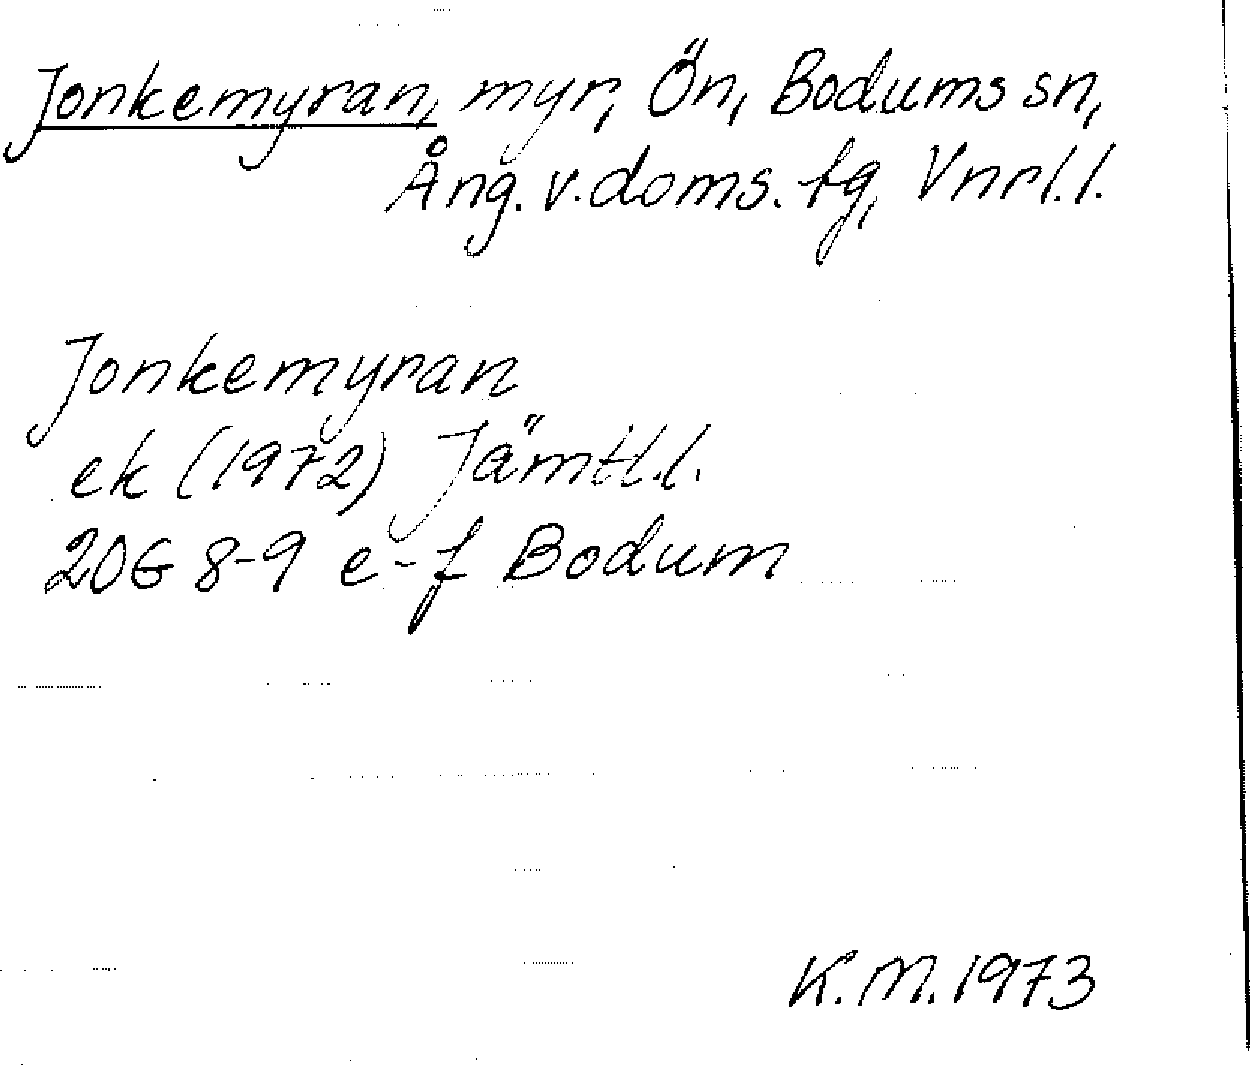 Jonkemyran, myr, Ön, Bodums sn,
Ång. v. doms. tg, Vnrl.l.
Jonkemyran
ek (1972) Jämtl.l.
20G 8-9 e-f Bodum
K.M. 1973